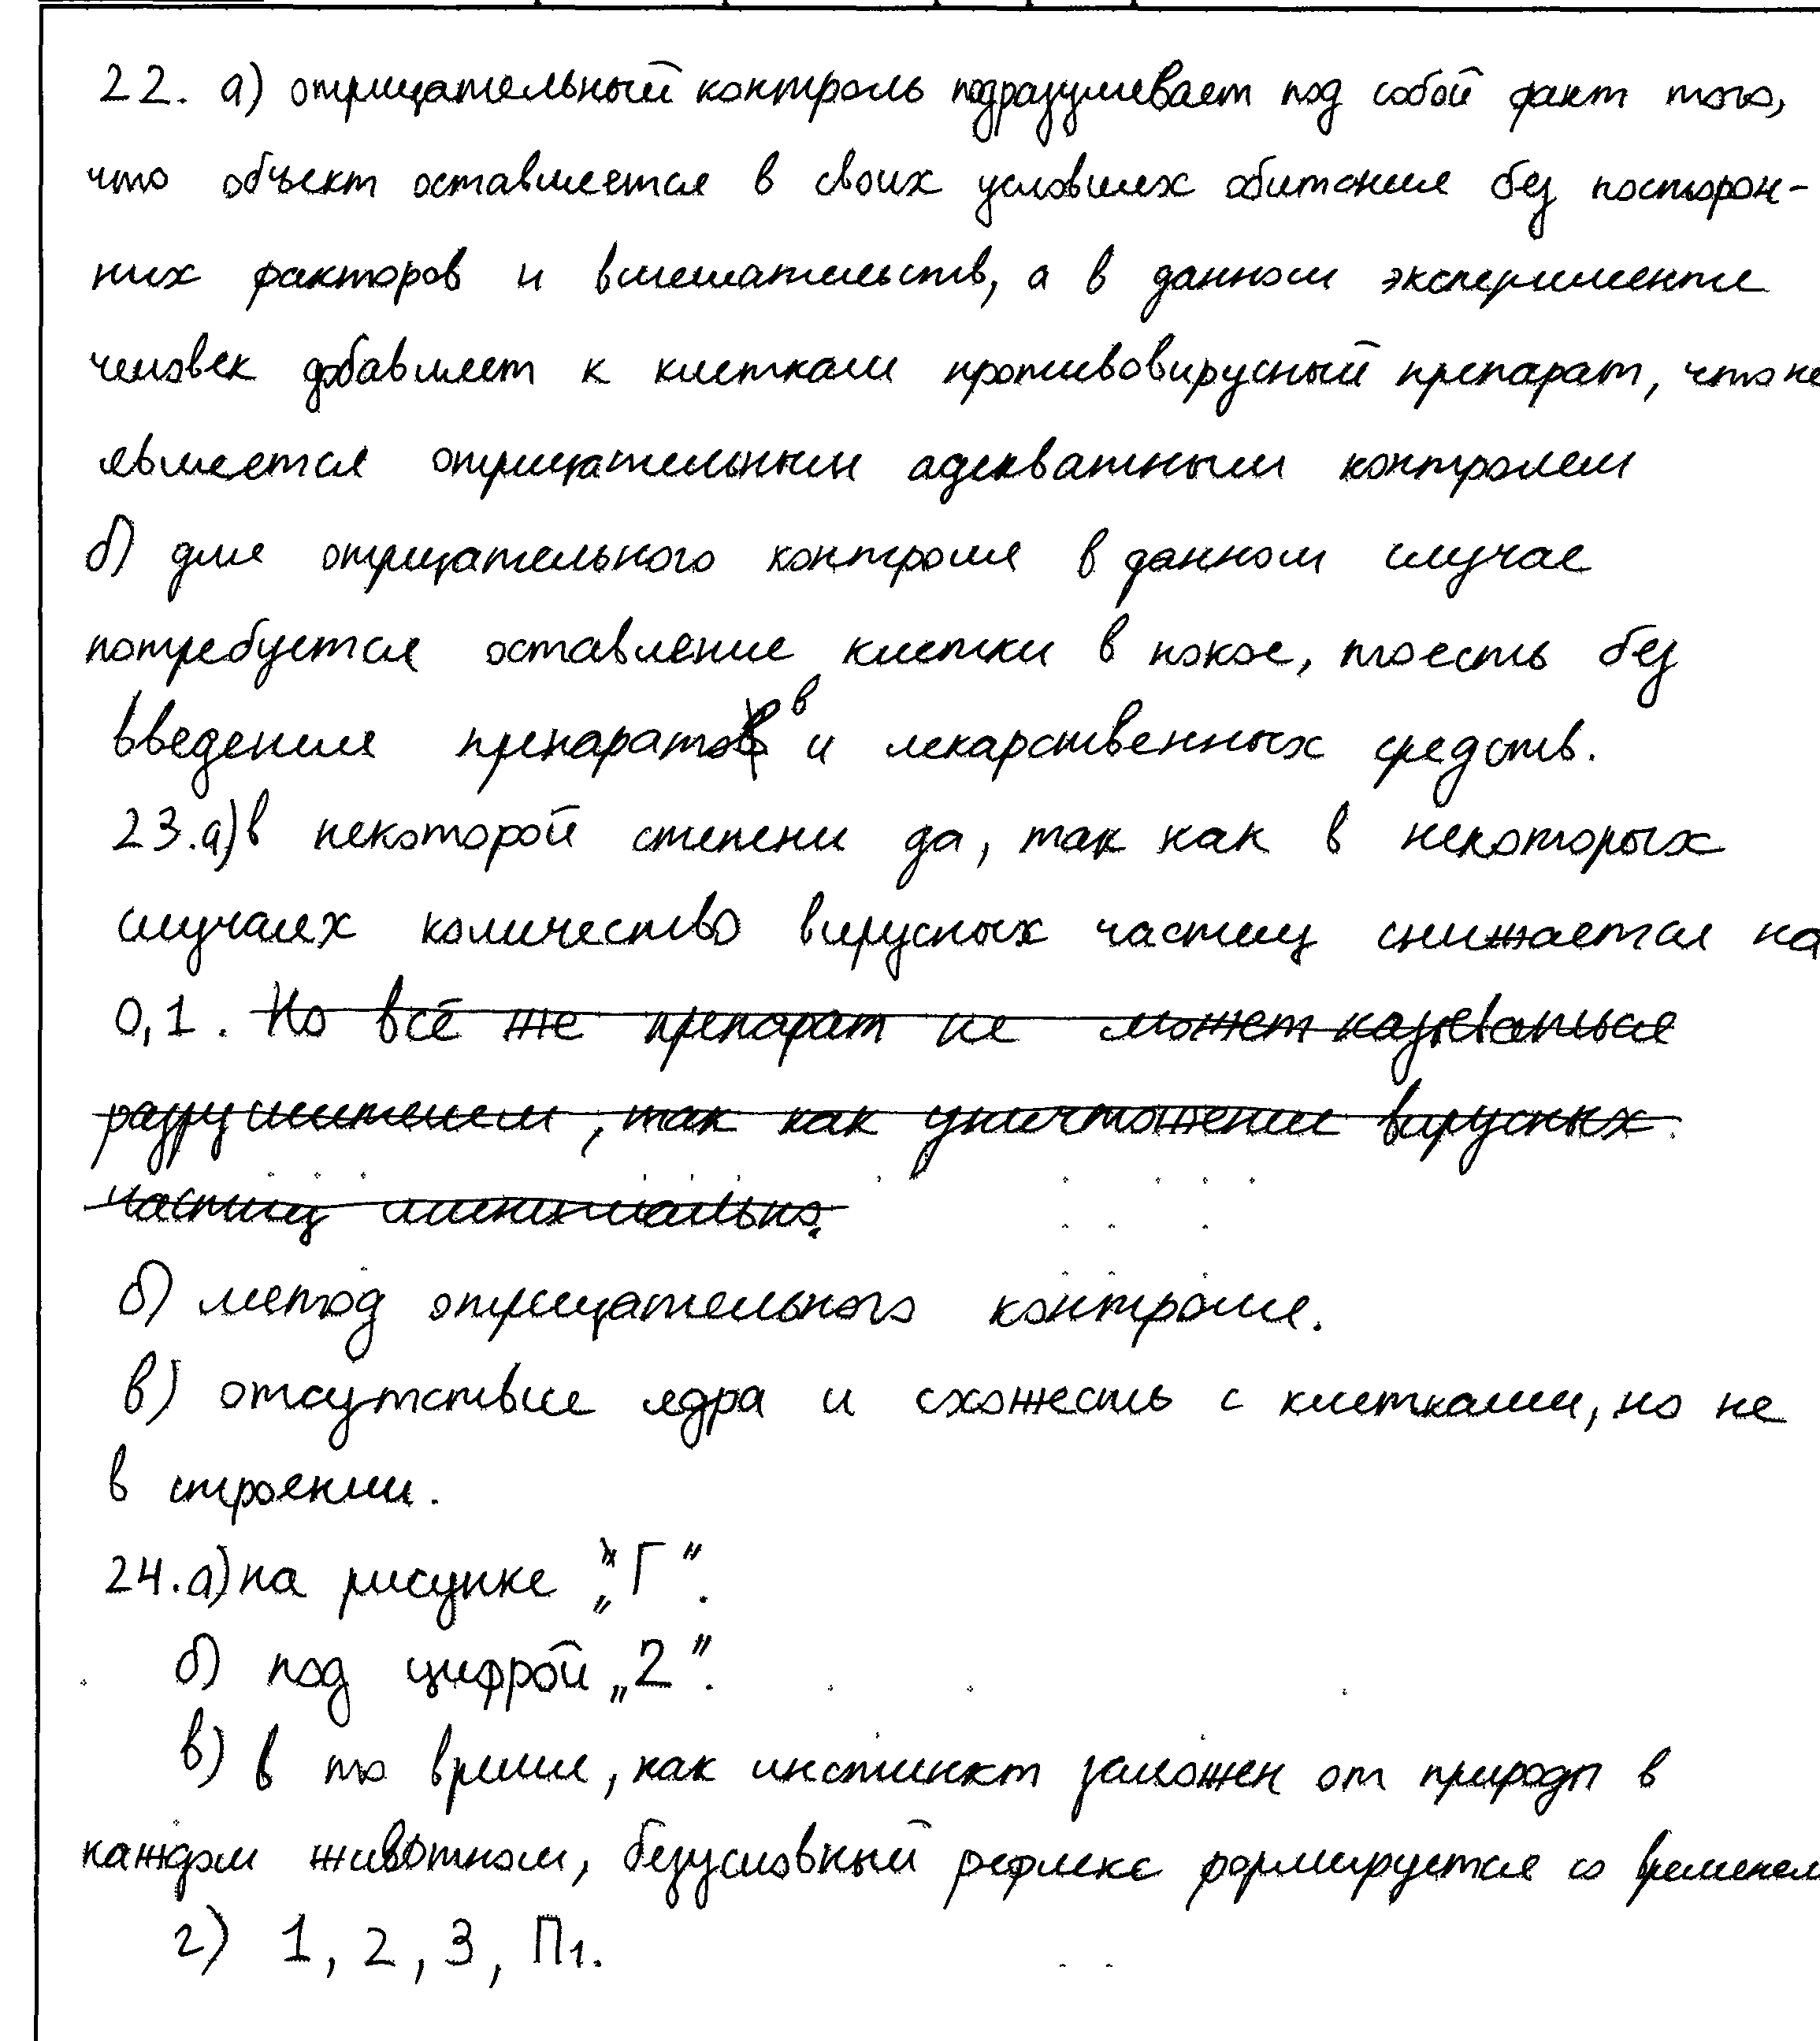 22. а) отрицательный контроль подразумевает под собой факт того,
что объект оставляется в своих условиях обитания без посторон-
них факторов и вмешательств, а в данном эксперименте
человек добавляет к клеткам противовирусный препарат, что не
является отрицательным адекватным контролем
б) для отрицательного контроля в данном случае
потребуется оставление клетки в покое, тоесть без
введения препаратов и лекарственных средств.
23. а) в некоторой степени да, так как в некоторых
случаях количество вирусных частиц снижается на
0,1. Но всё же препарат не может называться
разрушителем, так как уничтожение вирусных
частиц минимально.
б) метод отрицательного контроля.
в) отсутствие ядра и схожесть с клетками, но не
в строении.
24. а) на рисунке „Г".
б) под цифрой „2".
в) в то время, как инстинкт заложен от природы в
каждом животном, безусловный рефлекс формируется со временем
г) 1, 2, 3, П1.